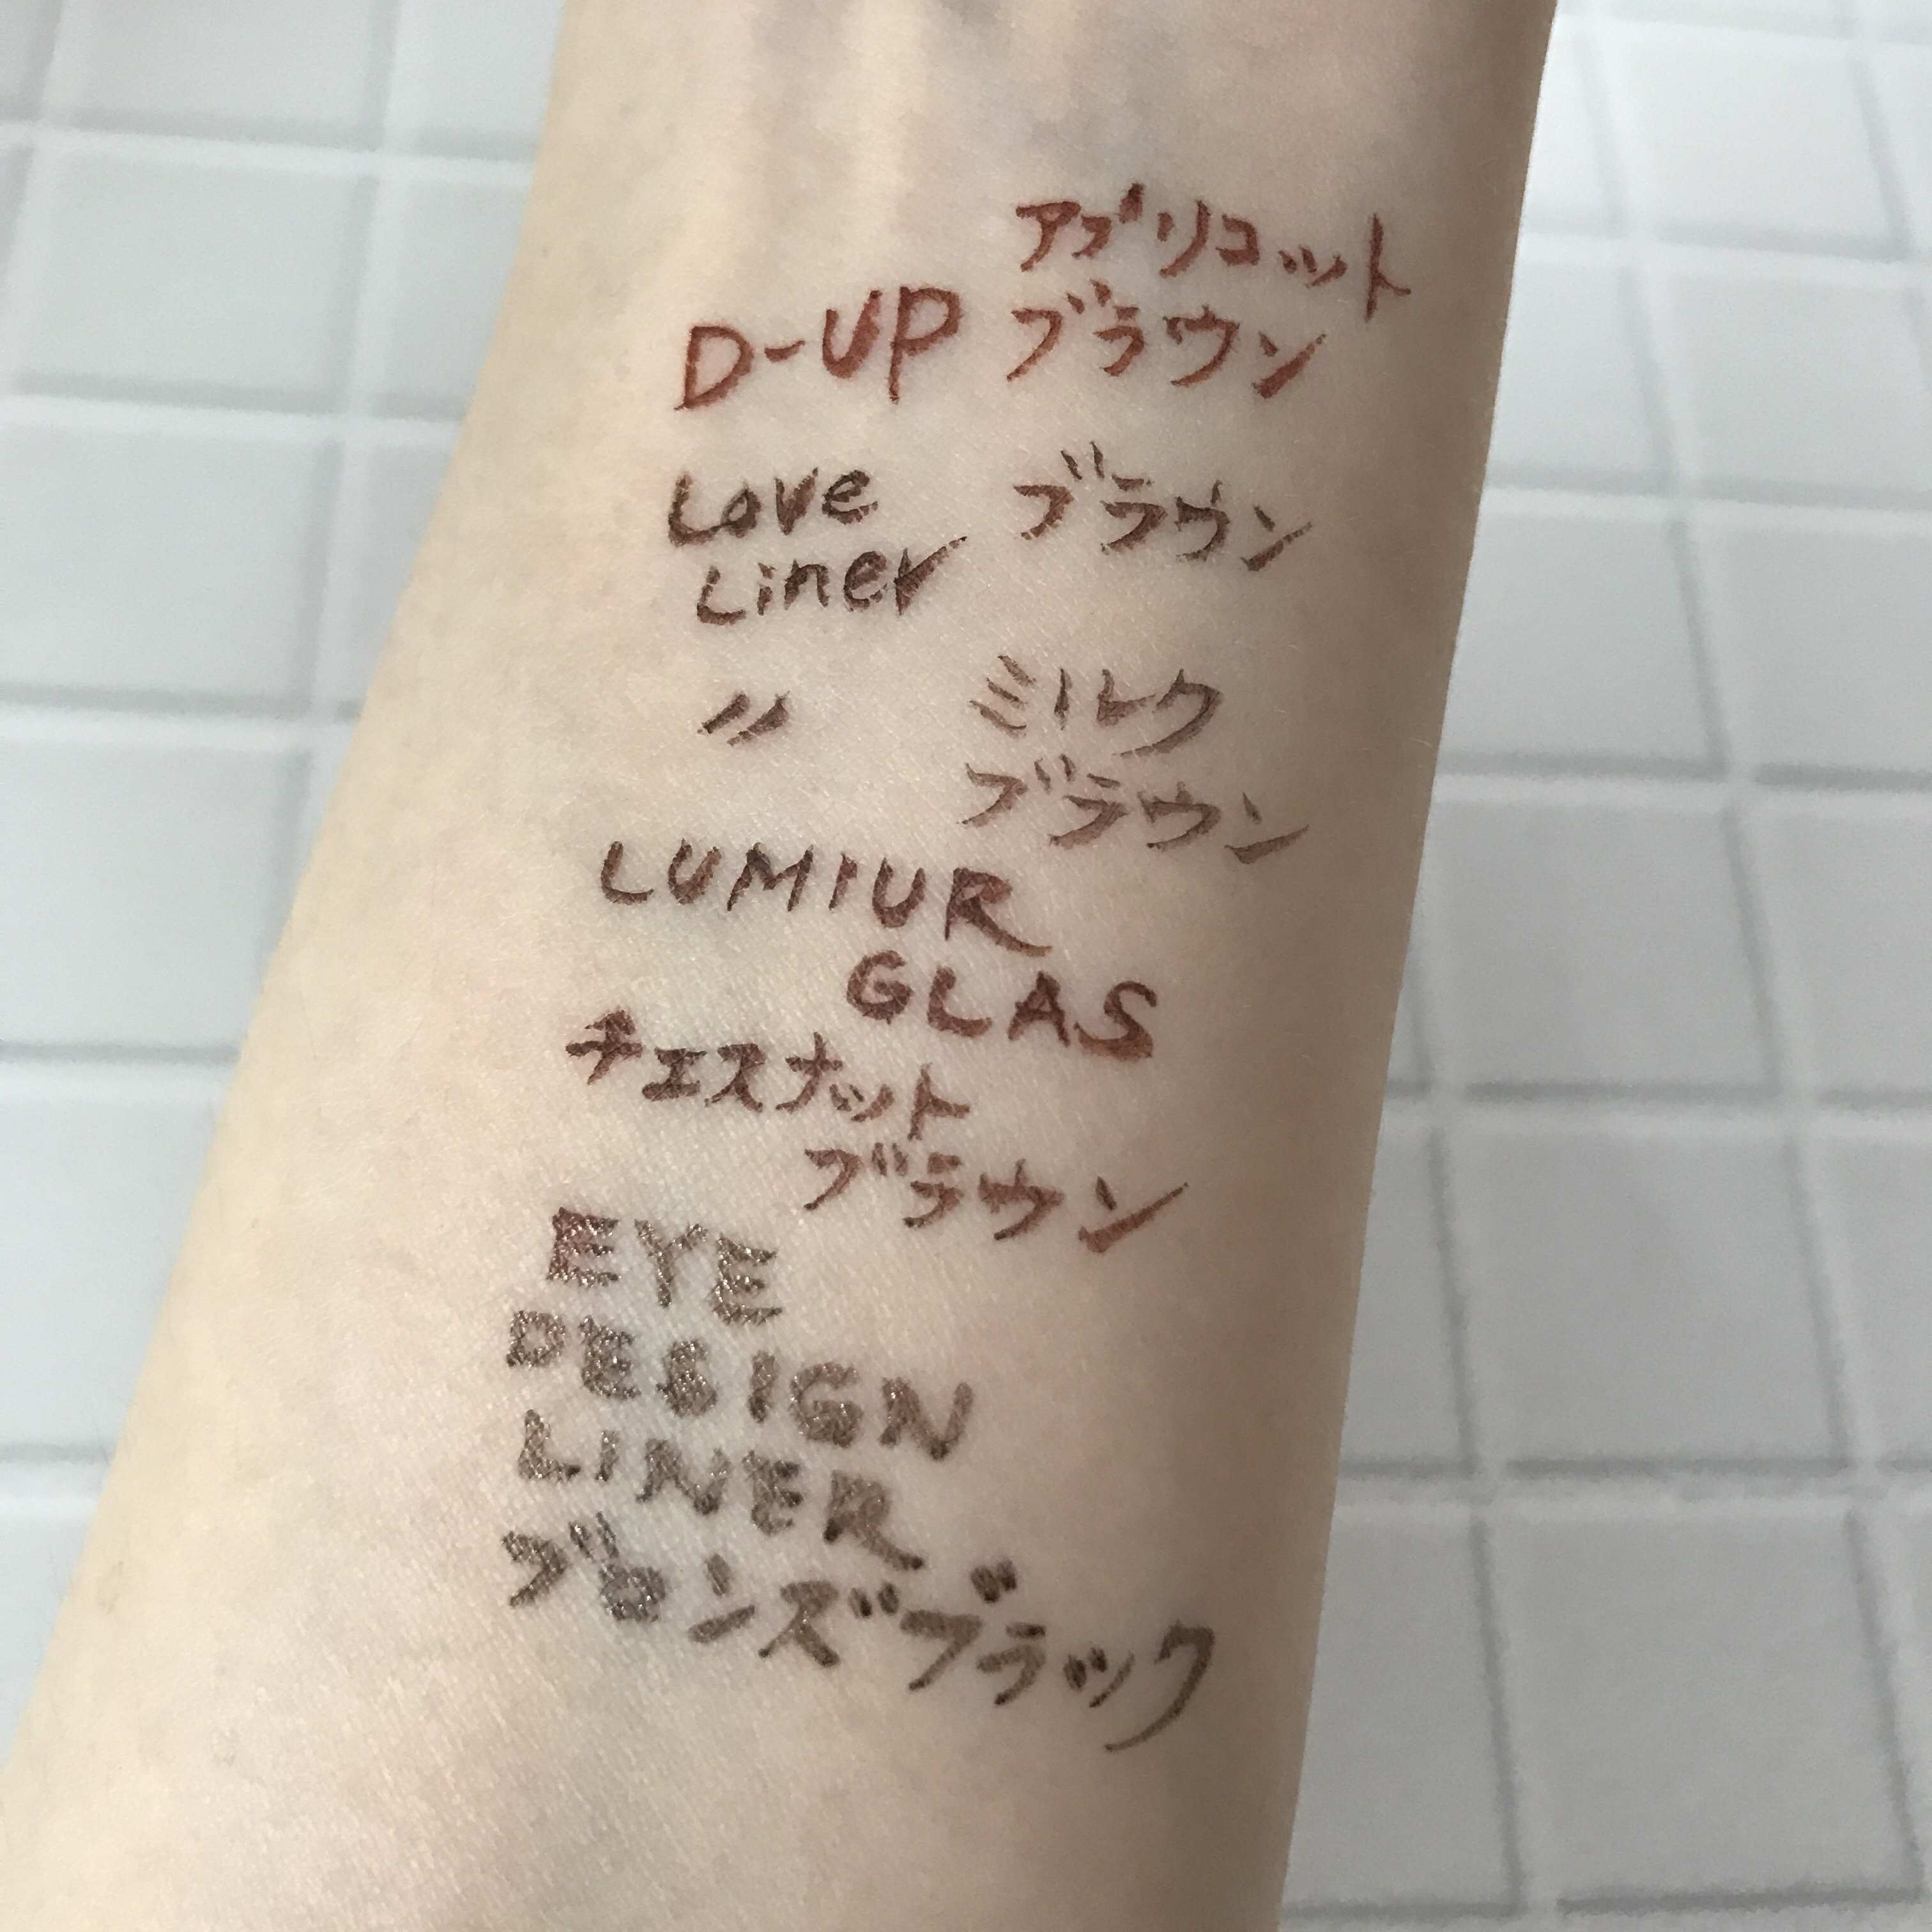 アプリコット
D-UP ブラウン
Love ブラウン
Liner
〃 ミルク
ブラウン
LUMIUR
GLAS
チェスナット
ブラウン
EYE
DESIGN
LINER
ブロンズブラック